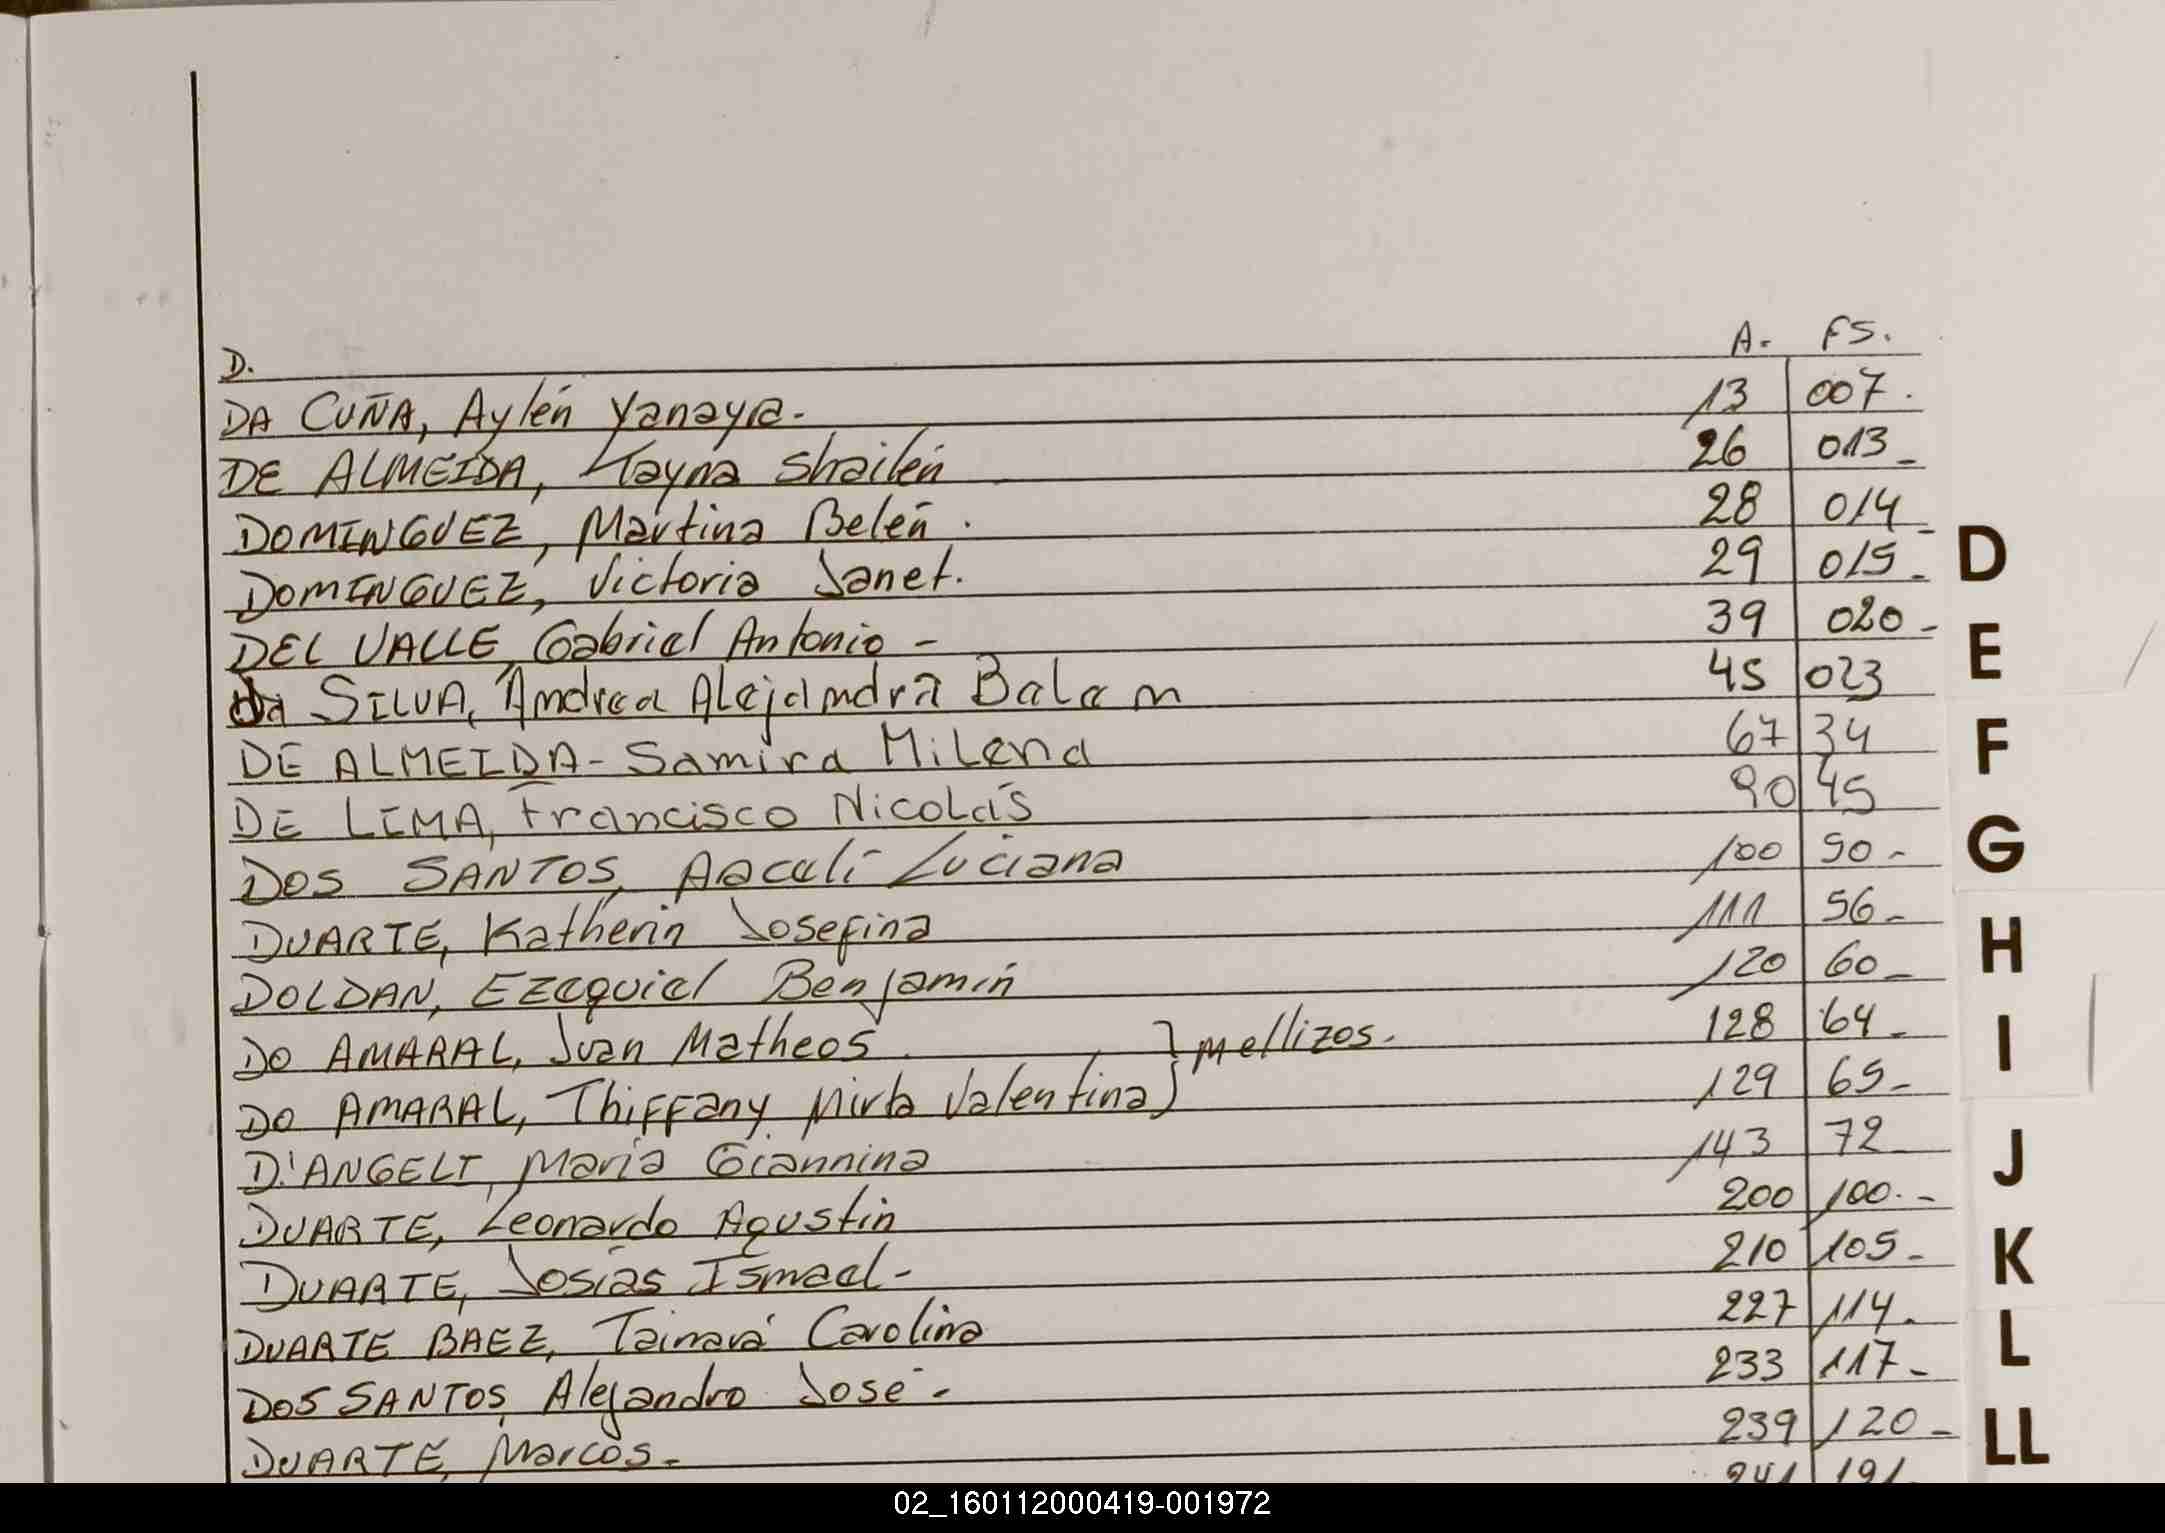 A. FS.
D.
DA CUÑA, Aylén Yanayra. 13 007.
DE ALMEIDA, Tayna Shailén 26 013_
DOMINGUEZ, Martina Belén. 28 014_
DOMINGUEZ, Victoria Janet. 29 015_
DEL VALLE, Gabriel Antonio - 39 020-
da SILVA, Andrea Alejandra Balam 45 023
DE ALMEIDA- Samira Milena 67 34
DE LIMA, Francisco Nicolás 90 45
DOS SANTOS, Aacelí Luciana 100 50-
DUARTE, Katherin Josefina 111 56-
DOLDAN, Ezequiel Benjamín 120 60_
DO AMARAL, Juan Matheos } mellizos. 128 64_
DO AMARAL, Thiffany Mirta Valentina 129 65-
D'ANGELI, María Giannina 143 72_
DUARTE, Leonardo Agustín 200 100.-
DUARTE, Josías Ismael- 210 105-
DUARTE BAEZ, Tainará Carolina 227 114.
DOS SANTOS, Alejandro José- 233 117-
DUARTE, Marcos- 239 120-
241 121
D
E
F
G
H
I
J
K
L
LL
02_160112000419-001972